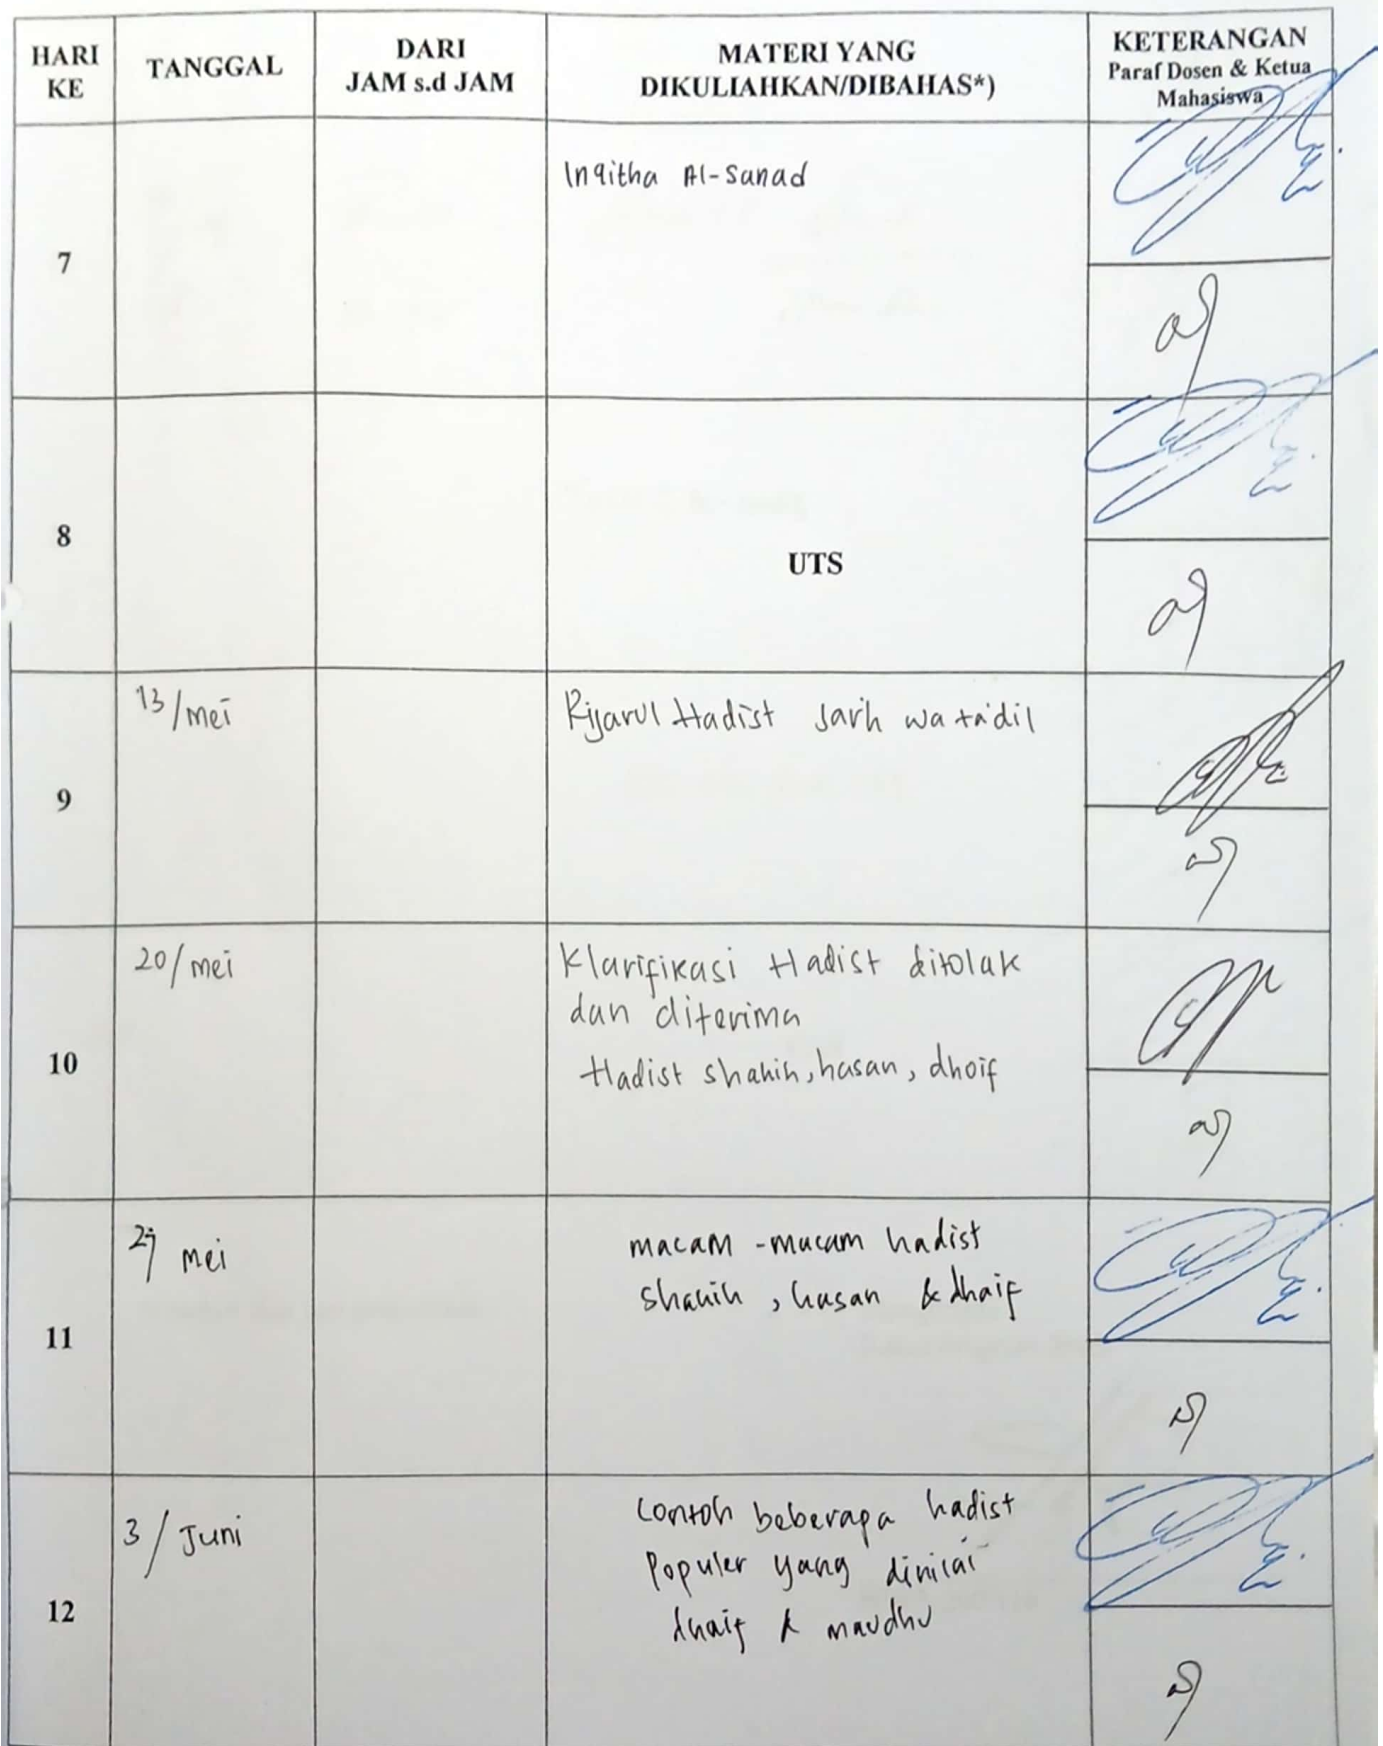 HARI KE
TANGGAL
DARI
JAM s.d JAM
MATERI YANG
DIKULIAHKAN/DIBAHAS*)
KETERANGAN
Paraf Dosen & Ketua
Mahasiswa
7
Inqitha Al-Sanad
8
UTS
9
13/mei
Rijarul Hadist Jarh wa ta'dil
10
20/mei
Klarifikasi Hadist ditolak
dan diterima
Hadist shahih, hasan, dhoif
11
27 mei
macam-macam hadist
shahih, hasan & dhaif
12
3/Juni
Contoh beberapa hadist
Populer yang dinilai
dhaif & maudhu